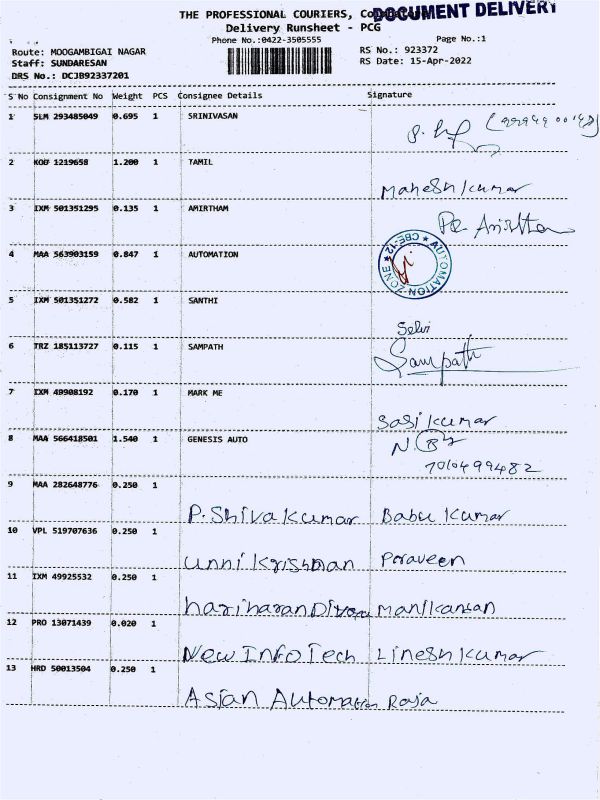 THE PROFESSIONAL COURIERS,
DOCUMENT DELIVERY
Delivery Runsheet - PCG
Phone No.:0422-3505555
Page No.:1
Route: MOOGAMBIGAI NAGAR
RS No.: 923372
Staff: SUNDARESAN
RS Date: 15-Apr-2022
DRS No.: DCJB92337201
S No Consignment No Weight PCS Consignee Details Signature
1 SLM 293485049 0.695 1 SRINIVASAN
2 KOB 1219658 1.200 1 TAMIL
Maheshkumar
3 IXM 501351295 0.135 1 AMIRTHAM
4 MAA 563903159 0.847 1 AUTOMATION
AUTOMATION ZONE ★ CBE-12 ★
5 IXM 501351272 0.582 1 SANTHI
Selvi
6 TRZ 185113727 0.115 1 SAMPATH
Sampath
7 IXM 49908192 0.170 1 MARK ME
Sasi kumar
8 MAA 566418501 1.540 1 GENESIS AUTO
9 MAA 282648776 0.250 1
P. Shiva kumar Babu kumar
10 VPL 519707636 0.250 1
unni krishnan Paraveen
11 IXM 49925532 0.250 1
hariharan Manikantan
12 PRO 13071439 0.020 1
New Info Tech Linesh kumar
13 HRD 50013504 0.250 1
Asian Automation Raja